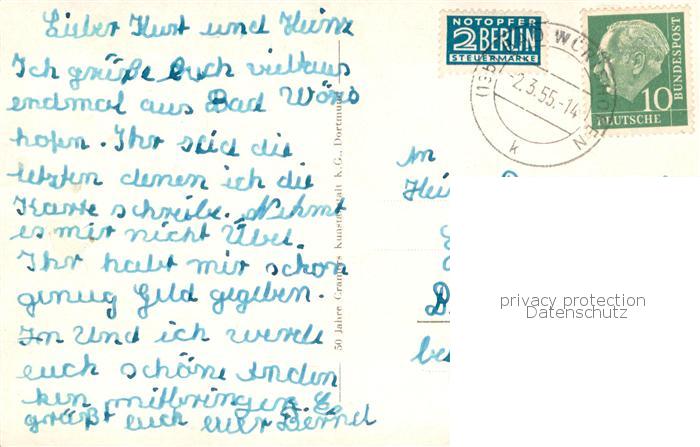 Lieber Kurt und Heinz
Ich grüße Euch vieltaus
endmal aus Bad Wöris
hofen. Ihr seid die
letzten denen ich die
Karte schreibe. Nehmt
es mir nicht Übel.
Ihr habt mir schon
genug Geld gegeben.
Im Und ich werde
euch schöne Anden
ken mitbringen. Es
grüßt euch euer Bernd
50 Jahre Gramers Kunstanstalt K.G., Dortmund
NOTOPFER
2 BERLIN
STEUERMARKE
BAD WÖRISHOFEN
-2.3.55.-14
k
DEUTSCHE
BUNDESPOST
10
An
privacy protection
Datenschutz